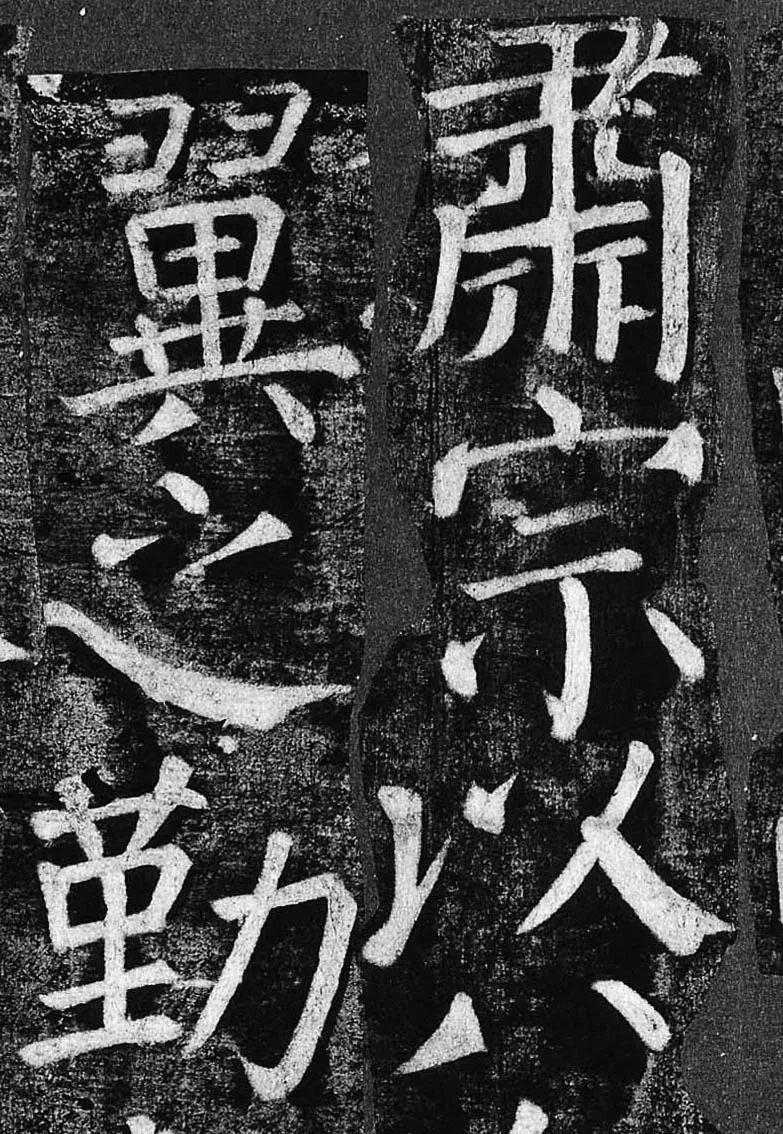 肅宗以
翼之勤